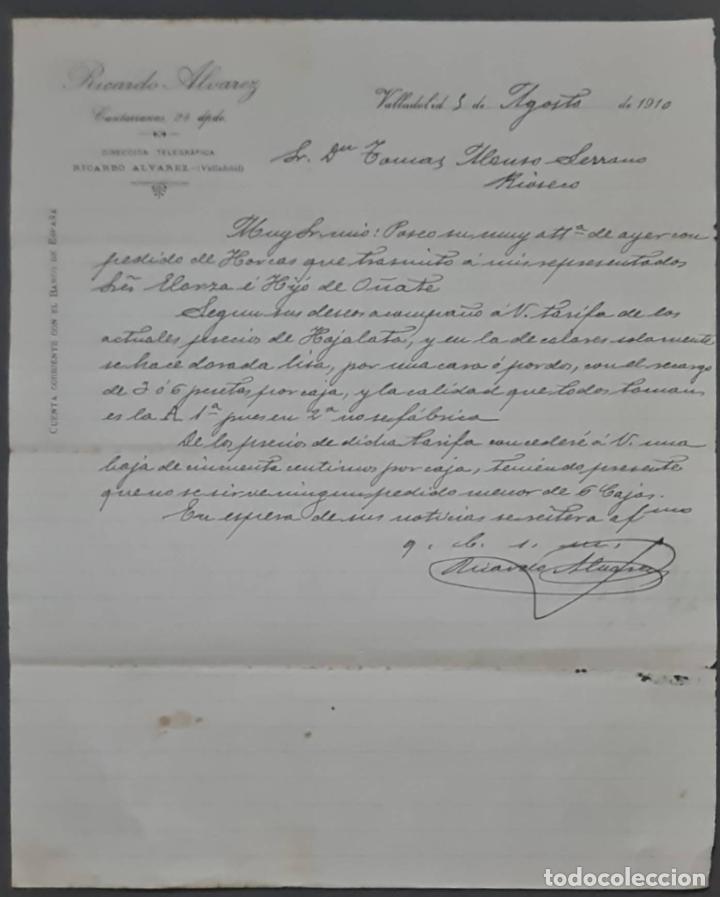 Ricardo Alvarez
Cantarranas, 24 dpdo.
DIRECCIÓN TELEGRÁFICA
RICARDO ALVAREZ-(Valladolid)
CUENTA CORRIENTE CON EL BANCO DE ESPAÑA
Valladolid 5 de Agosto de 1910
Sr. Dn Tomas Alonso Serrano
Rioseco
Muy Sr. mio: Poseo su muy attª de ayer con
pedido de Horcas que trasmito á mis representados
Sres Elorza é Hijo de Oñate
Segun sus deseos acompaño á V. tarifa de los
actuales precios de Hojalata, y en la de colores solamente
se hace dorada lisa, por una cara ó por dos, con el recargo
de 3 ó 6 pesetas por caja, y la calidad que todos toman
es la A 1ª pues en 2ª no se fábrica
De los precios de dicha tarifa concederé á V. una
baja de cincuenta centimos por caja, teniendo presente
que no se sirve ningun pedido menor de 6 Cajas.
En espera de sus noticias se reitera afmo
q. b. s. m.
Ricardo Alvarez
todocoleccion.net